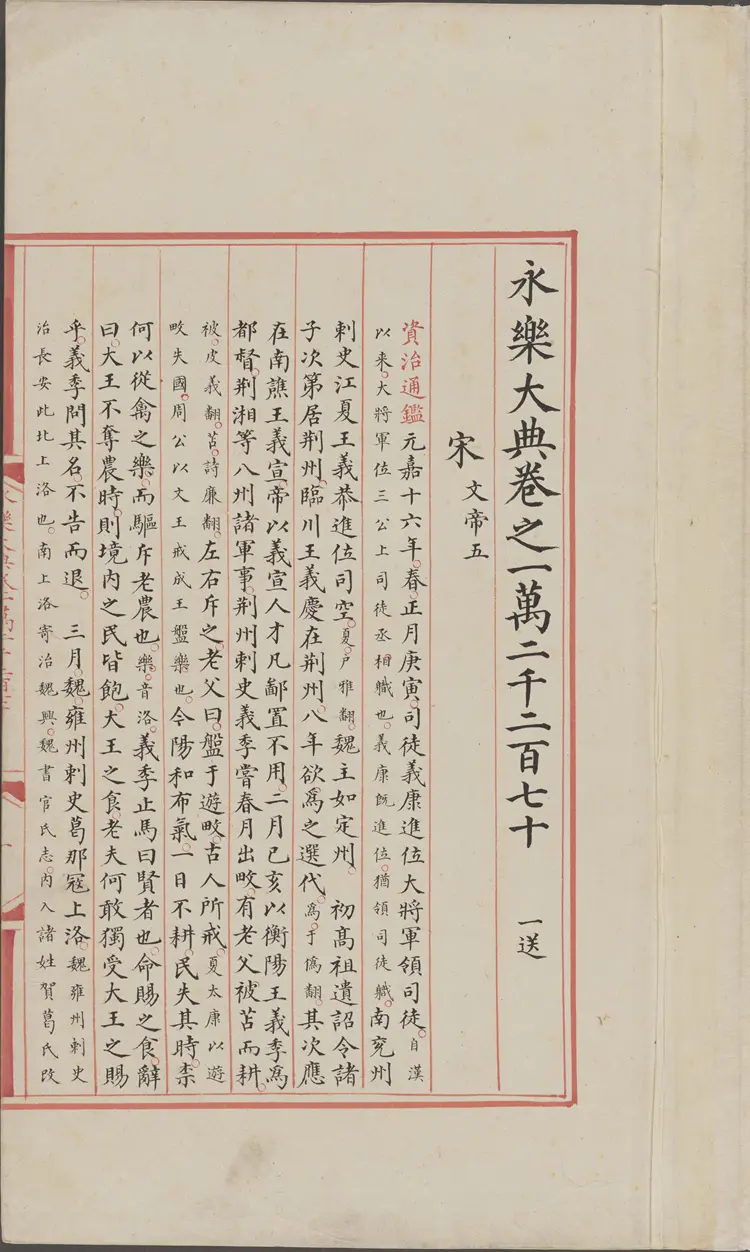 永樂大典卷之一萬二千二百七十 一送
宋 文帝五
資治通鑑元嘉十六年。春。正月庚寅。司徒義康進位大將軍領司徒。自漢
以来。大將軍位三公上司徒丞相職也。義康旣進位。猶領司徒職。南兖州
刺史江夏王義恭進位司空。夏。戶雅翻。魏主如定州。 初髙祖遺詔令諸
子次第居荆州。臨川王義慶在荆州。八年欲爲之選代。爲。于僞翻。其次應
在南譙王義宣。帝以義宣人才凡鄙置不用。二月己亥以衡陽王義季爲
都督。荆湘等八州諸軍事。荆州刺史義季嘗春月出畋。有老父被苫而耕。
被。皮義翻。苫。詩廉翻。左右斥之。老父曰。盤于遊畋。古人所戒。夏太康以遊
畋失國。周公以文王戒成王盤樂也。今陽和布氣。一日不耕。民失其時。柰
何以從禽之樂。而驅斥老農也。樂。音洛。義季止馬曰賢者也。命賜之食。辭
曰。大王不奪農時。則境内之民皆飽。大王之食。老夫何敢獨受大王之賜
乎。義季問其名。不告而退。 三月。魏。雍州刺史葛那冦上洛。魏雍州刺史
治長安此北上洛也。南上洛寄治魏興。魏書官氏志。内入諸姓賀葛氏改